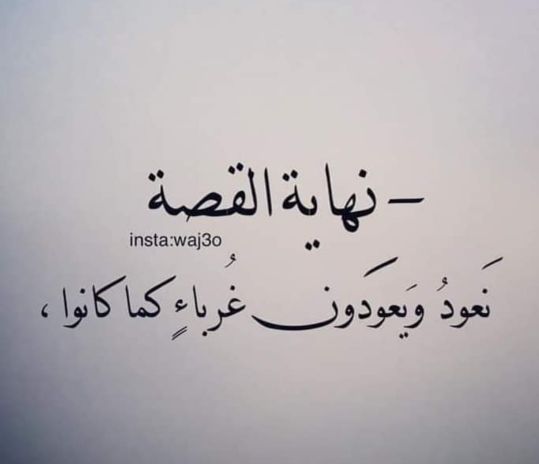 – نهاية القصة
insta:waj3o
نَعودُ وَيعودَون غُرباءٍ كما كانوا ،